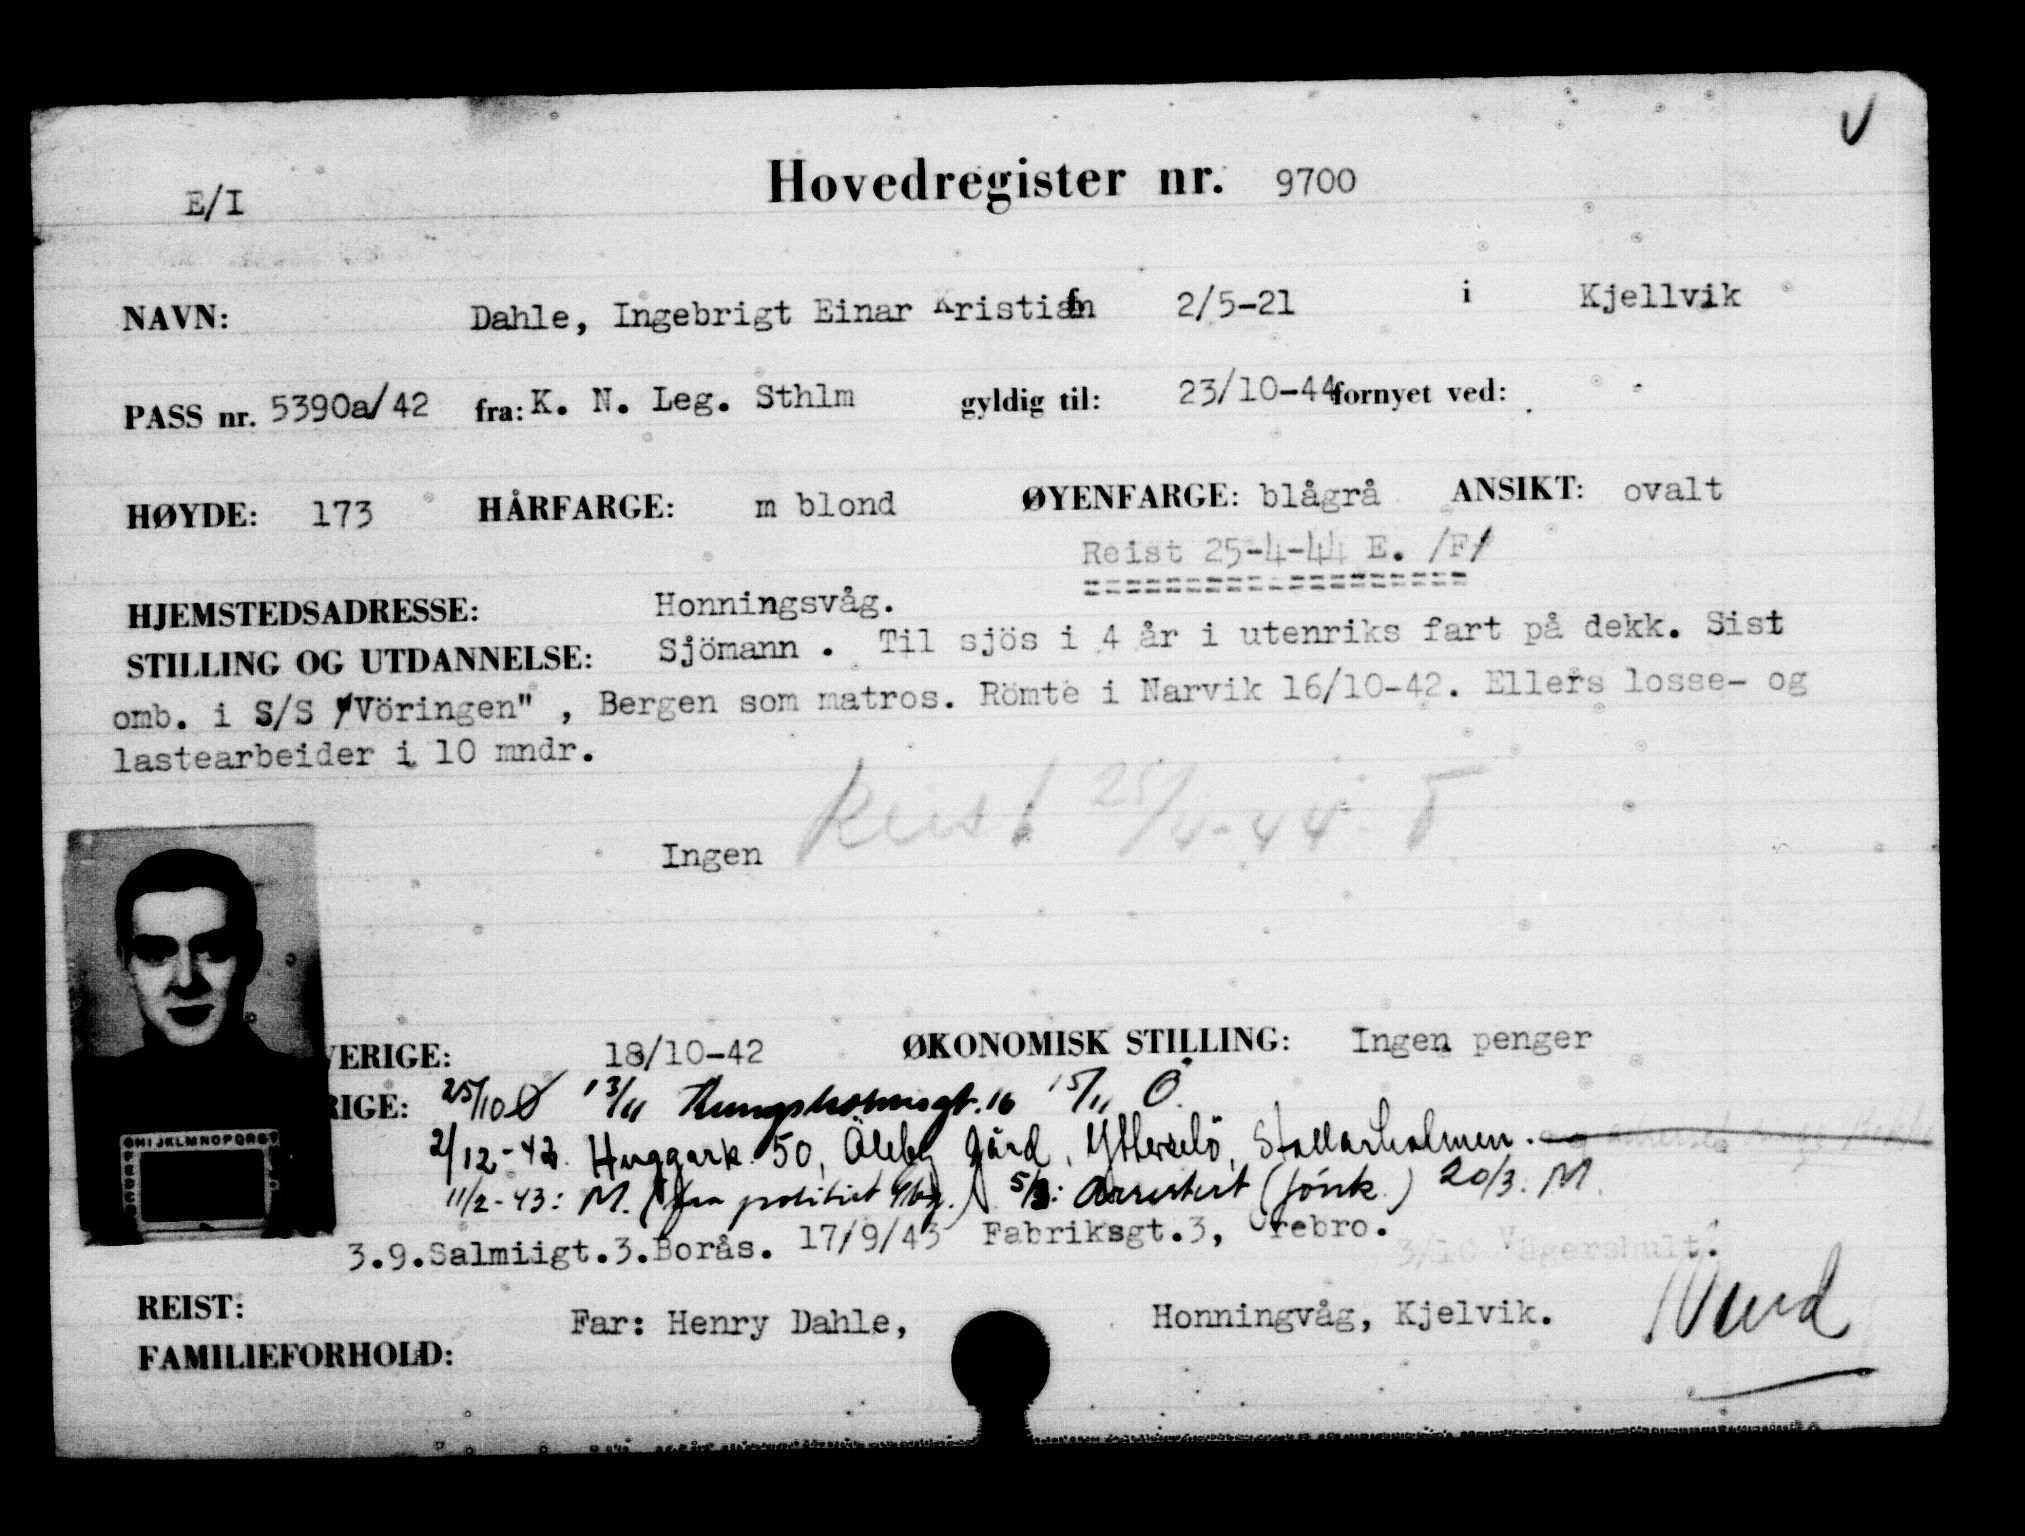 E/I
Hovedregister nr. 9700
NAVN: Dahle, Ingebrigt Einar Kristian f 2/5-21 i Kjellvik
PASS nr. 5390a/42 fra: K. N. Leg. Sthlm gyldig til: 23/10-44 fornyet ved:
HØYDE: 173 HÅRFARGE: m blond ØYENFARGE: blågrå ANSIKT: ovalt
Reist 25-4-44 E. /F/
HJEMSTEDSADRESSE: Honningsvåg.
STILLING OG UTDANNELSE: Sjömann . Til sjös i 4 år i utenriks fart på dekk. Sist
omb. i S/S "Vöringen" , Bergen som matros. Römte i Narvik 16/10-42. Ellers losse- og
lastearbeider i 10 mndr.
Reist 25/4-44
Ingen
VERIGE: 18/10-42 ØKONOMISK STILLING: Ingen penger
RIGE: 25/10 Ø 13/11 Kungsholmsgt. 16 15/11 Ö.
2/12-42. Huggark. 50, Åleby Gård, Ytterselö, Stallarholmen.
11/2-43: M. (fra politiet Gbg.) Arrestert 20/3: M.
3.9.Salmiigt.3.Borås. 17/9/43 Fabriksgt.3, Örebro.
3/10 Vägershult.
REIST:
Far: Henry Dahle, Honningvåg, Kjelvik.
FAMILIEFORHOLD: